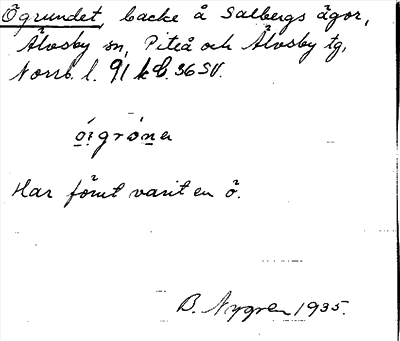 Ögrundet, backe å Salbergs ägor,
Älvsby sn, Piteå och Älvsby tg,
Norrb. l. 91 kB. 36 SV.
Har förut varit en ö.
B. Nygren 1935.